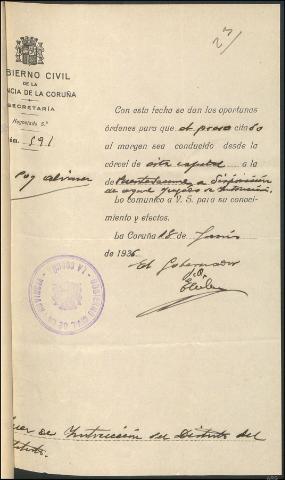 27
BIERNO CIVIL
DE LA
NCIA DE LA CORUÑA
SECRETARÍA
Negociado 5.º
591
Con esta fecha se dan las oportunas
órdenes para que el preso citado
al margen sea conducido desde la
cárcel de esta capital a la
de a disposición
de aquel Juzgado de Instrucción.
Lo comunico a V. S. para su conoci-
miento y efectos.
La Coruña 18 de Junio
de 1936
El Gobernador
GOBIERNO CIVIL DE LA PROVINCIA LA CORUÑA
de Instrucción del Distrito del